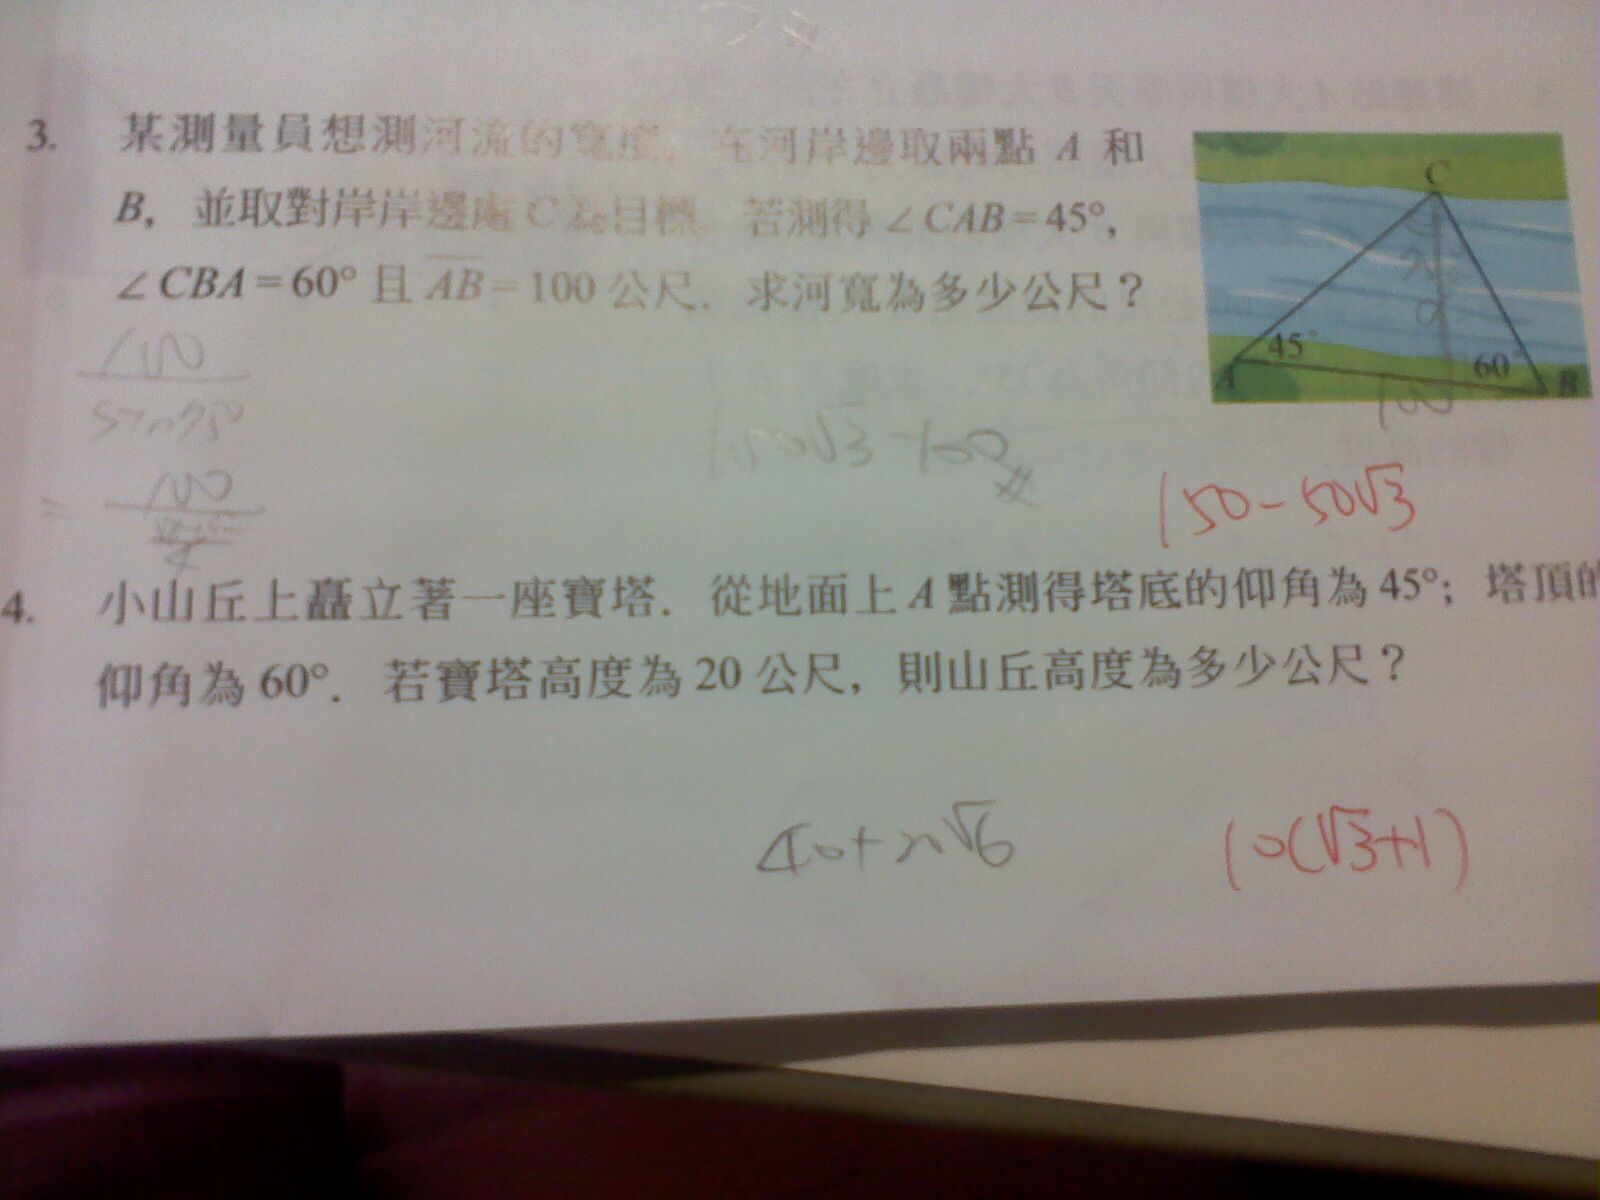 3. 某測量員想測河流的寬度，在河岸邊取兩點 A 和
B，並取對岸岸邊處 C 為目標．若測得 ∠CAB=45°，
∠CBA=60° 且 AB=100 公尺．求河寬為多少公尺？
C
45°
60°
A
B
100
100
sin75°
= 100
4
150√3-100
150-50√3
4. 小山丘上矗立著一座寶塔．從地面上 A 點測得塔底的仰角為 45°；塔頂的
仰角為 60°．若寶塔高度為 20 公尺，則山丘高度為多少公尺？
40+20√6
10(√3+1)